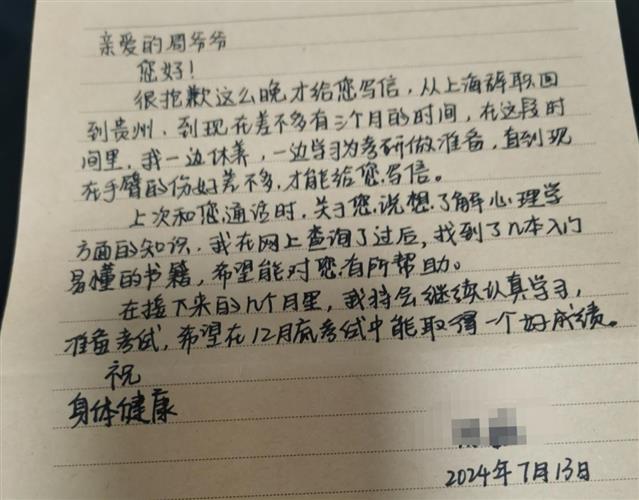 亲爱的周爷爷
您好！
很抱歉这么晚才给您写信，从上海辞职回
到贵州，到现在差不多有三个月的时间，在这段时
间里，我一边休养，一边学习为考研做准备，直到现
在手臂的伤好差不多，才能给您写信。
上次和您通话时，关于您说想了解心理学
方面的知识，我在网上查询了过后，找到了几本入门
易懂的书籍，希望能对您有所帮助。
在接下来的几个月里，我将会继续认真学习，
准备考试，希望在12月底考试中能取得一个好成绩。
祝
身体健康
2024年7月13日